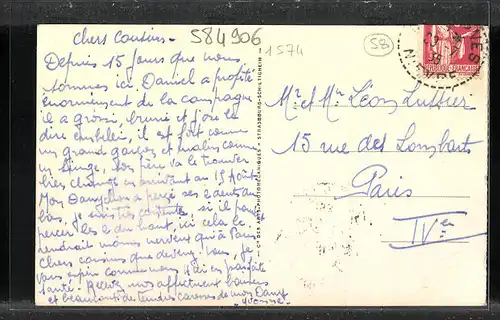 584906
1574
58
Chers Cousins -
Depuis 15 jours que nous
sommes ici. Daniel a profité
énormément de la campagne
il a grossi, bruni et j'ose le
dire embelli, il est fort comme
un grand garçon et malin comme
un singe, son père va le trouver
bien changé en arrivant au 15 Août
Mon Dany a percé ses 2 dents du
bas, je suis très contente, si il pouvait
percer les 2 du haut, ici cela le
rendrait moins nerveux qu'à Paris
Chers cousins que devenez-vous, je
vous espère comme nous ici en parfaite
santé. Recevez nos affectueux baisers
et beaucoup de tendres caresses de mon Dany
Yvonne
STRASBOURG-SCHILTIGHEIM
Mr et Mme Léon Lussier
15 rue des Lombarts
Paris
IVe
POSTES
FRANÇAISE